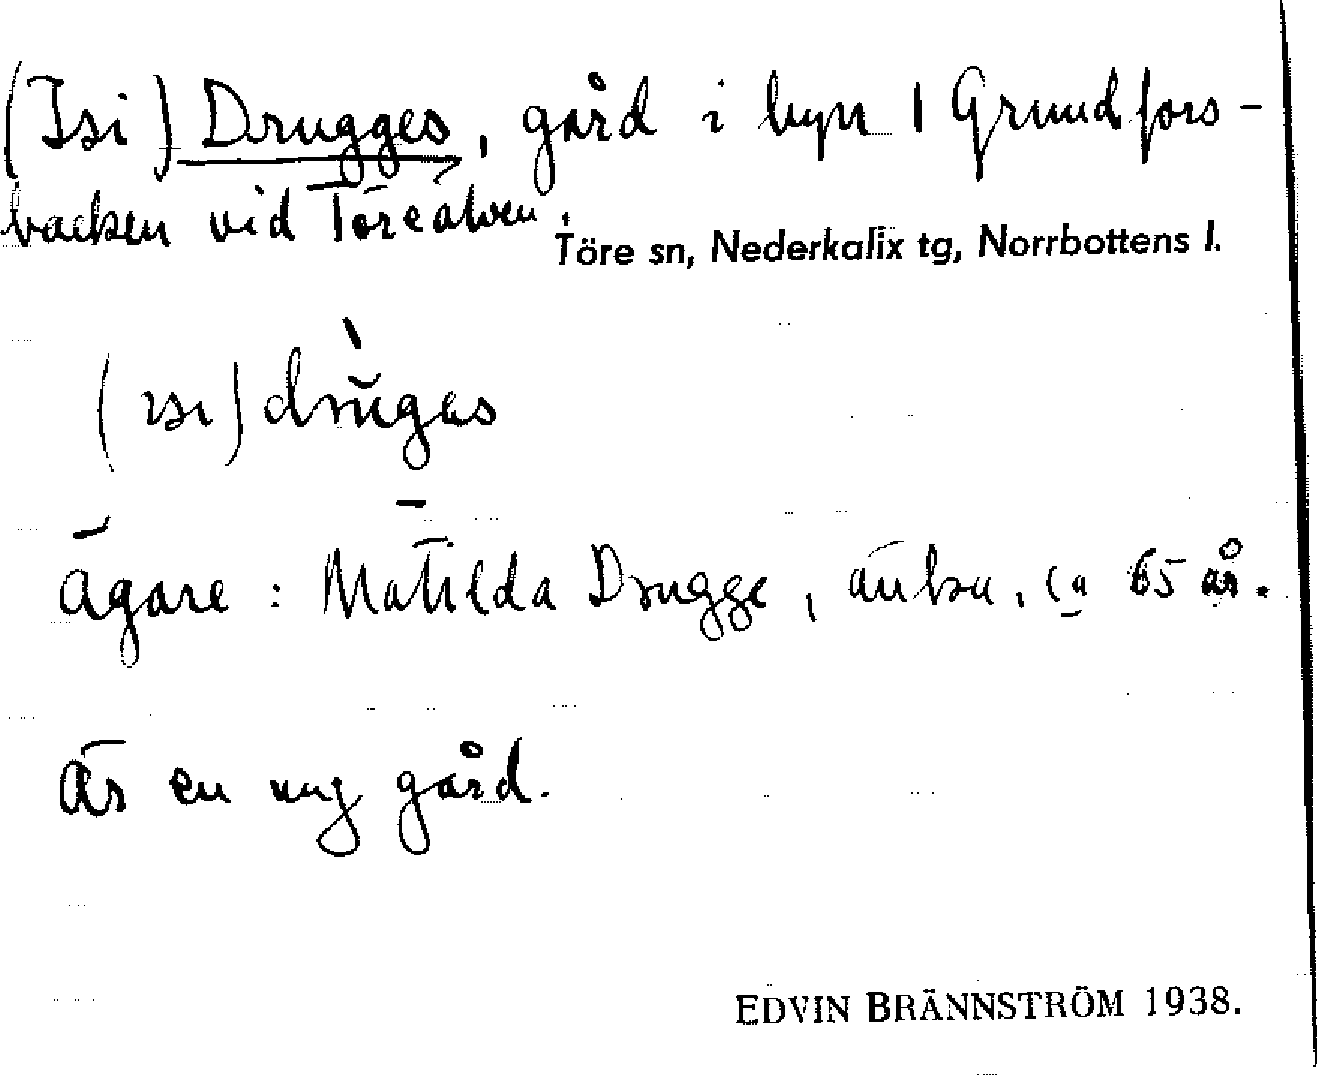 (Isi) Drugges, gård i byn / Grundfors-
backen vid Töreälven.
Töre sn, Nederkalix tg, Norrbottens l.
(ısı) drŭgas
Ägare: Matilda Drugge, änka, ca 65 år.
Är en ung gård.
EDVIN BRÄNNSTRÖM 1938.